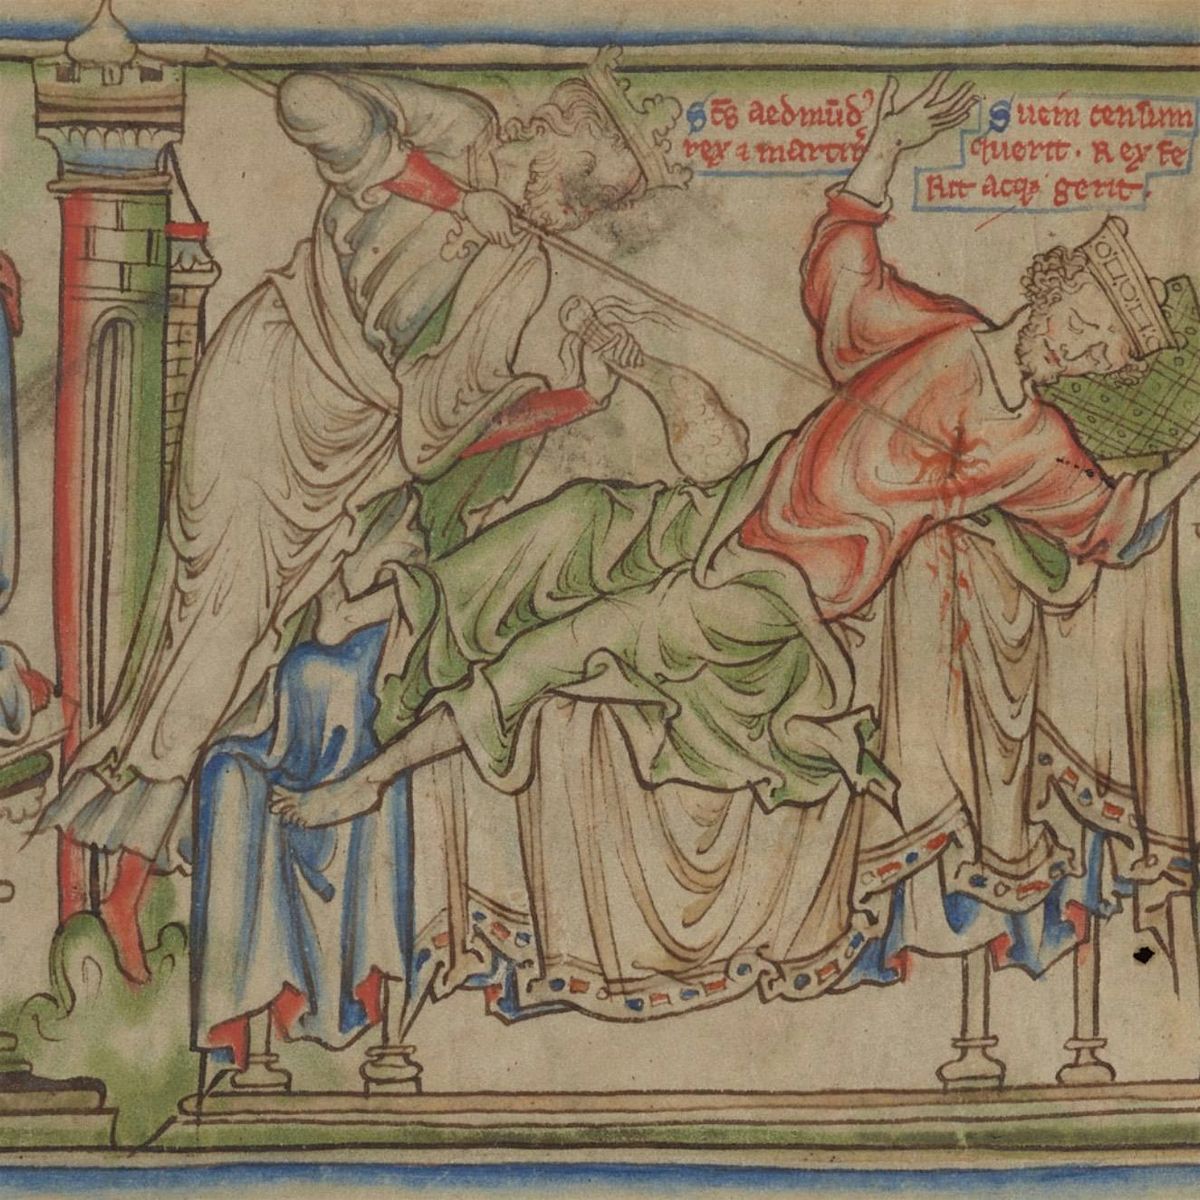 Sc̄s aedmūdꝰ
rex ⁊ martir
Suein censum
querit. Rex fe
rit acqꝫ gerit.